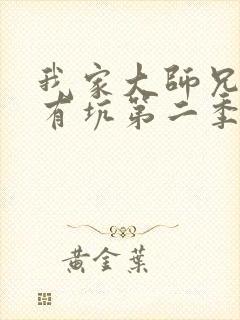 我家大師兄
有坑第二季
黃金葉